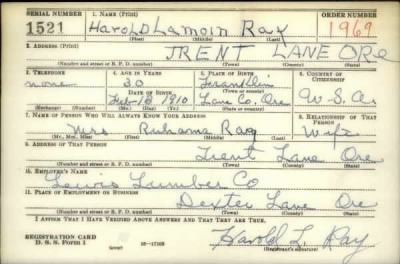 SERIAL NUMBER 1. NAME (Print) ORDER NUMBER
1521 Harold Lamoin Ray 1969
(First) (Middle) (Last)
2. ADDRESS (Print)
TRENT LANE ORE
(Number and street or R. F. D. number) (Town) (County) (State)
3. TELEPHONE 4. AGE IN YEARS 5. PLACE OF BIRTH 6. COUNTRY OF CITIZENSHIP
none 30 Franklin
DATE OF BIRTH (Town or county)
Feb-18 1910 Lane Co. Ore U.S.A.
(Exchange) (Number) (Mo.) (Day) (Yr.) (State or country)
7. NAME OF PERSON WHO WILL ALWAYS KNOW YOUR ADDRESS 8. RELATIONSHIP OF THAT PERSON
Mrs Ruhama Ray Wife
(Mr., Mrs., Miss) (First) (Middle) (Last)
9. ADDRESS OF THAT PERSON
Trent Lane Ore
(Number and street or R. F. D. number) (Town) (County) (State)
10. EMPLOYER'S NAME
Lewis Lumber Co
11. PLACE OF EMPLOYMENT OR BUSINESS
Dexter Lane Ore
(Number and street or R. F. D. number) (Town) (County) (State)
I AFFIRM THAT I HAVE VERIFIED ABOVE ANSWERS AND THAT THEY ARE TRUE.
REGISTRATION CARD
D. S. S. Form 1 Harold L. Ray
(Registrant's signature)